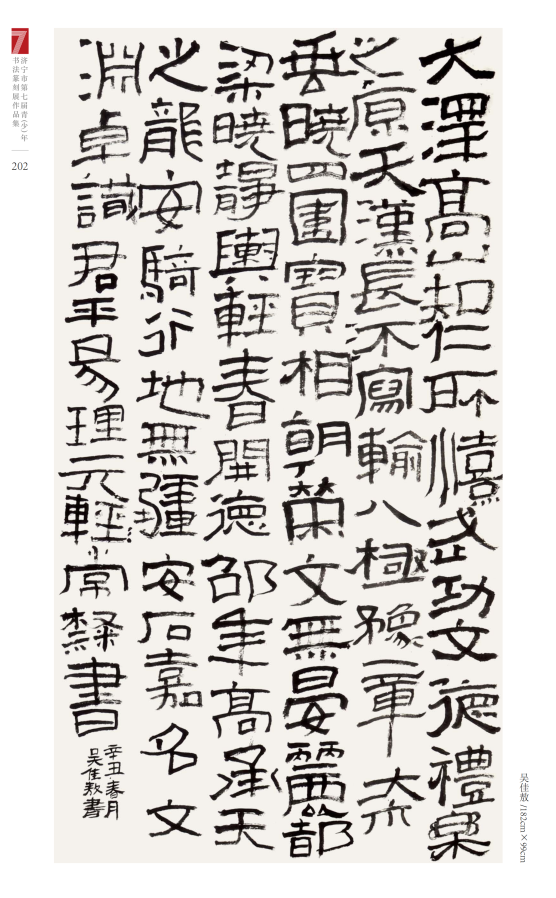 大澤高山知仁所憘武功文德禮樂
之原天漢長不寫輸八極豫章
垂曉四圍寶相朝榮文無晏麗都
梁曉靜輿輕春開德邵年高承天
之龍安騎行地無疆安石嘉名文
淵卓識君平易理元輕常隸書
辛丑春月
吴佳敖書
7
济宁市第七届青(少)年
书法篆刻展作品集
202
吴佳敖/182cm×99cm